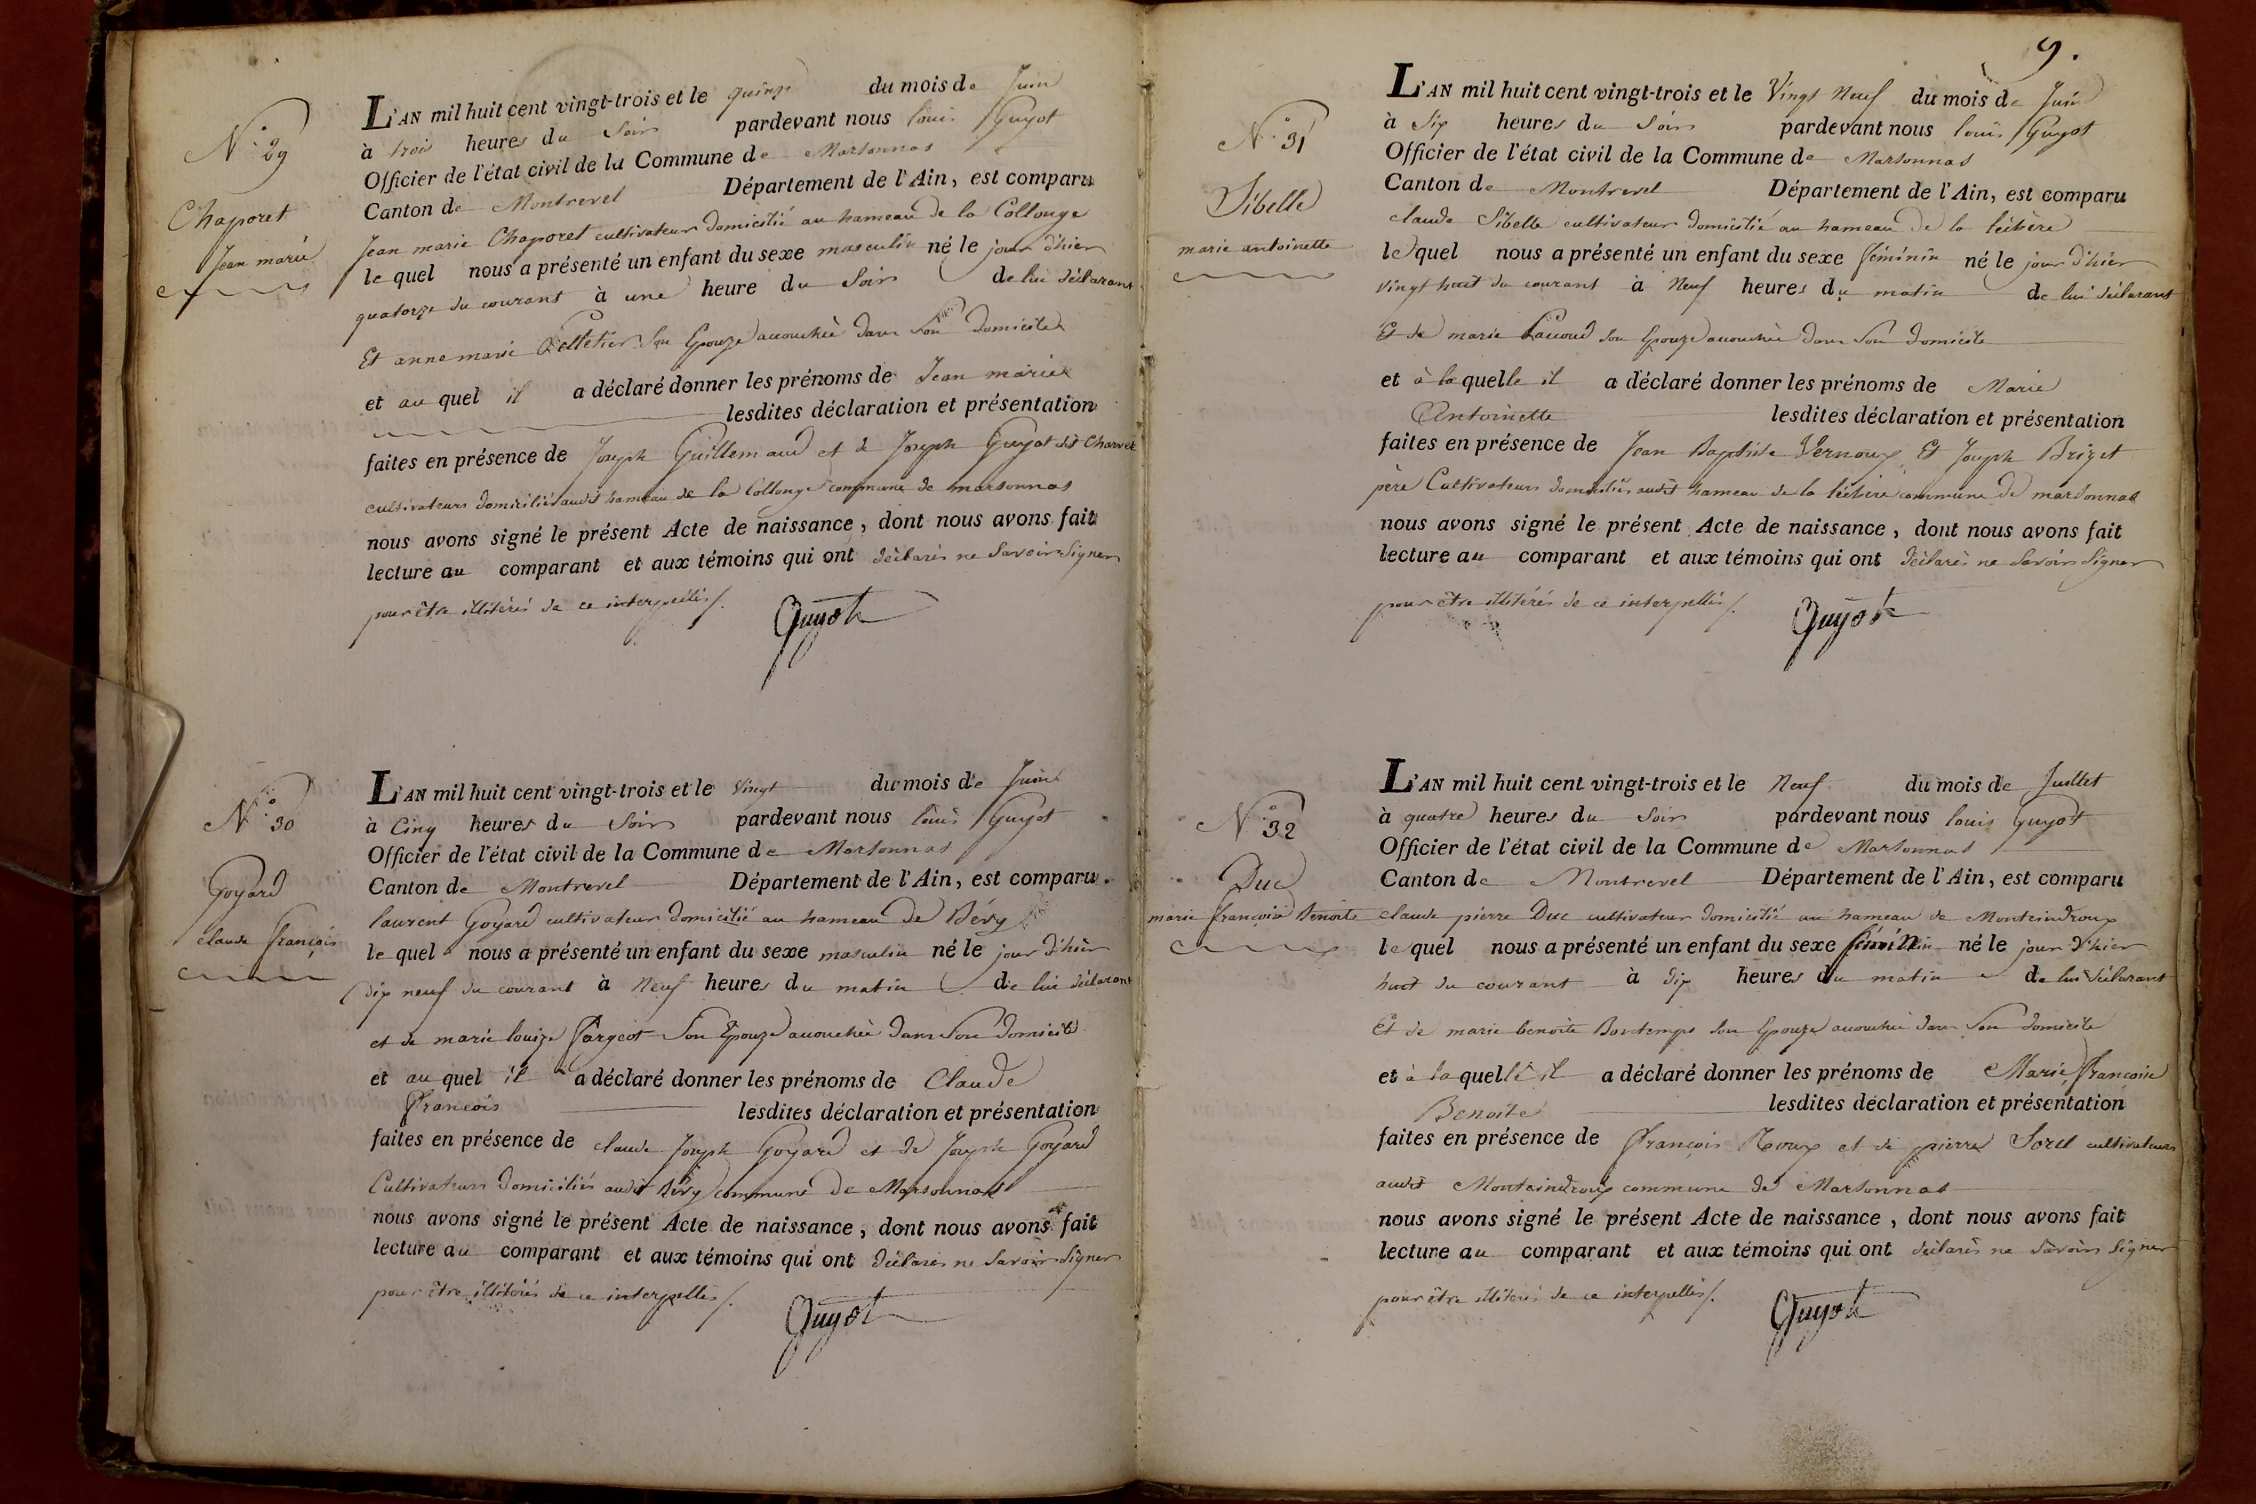 N.° 29
Chaporet
Jean marie
L'AN mil huit cent vingt-trois et le quinze du mois de Juin
à trois heures du Soir pardevant nous louis Guyot
Officier de l'état civil de la Commune de Marsonnas
Canton de Montrevel Département de l'Ain, est comparu
Jean marie Chaporet cultivateur domicilié au hameau de la Collonge
le quel nous a présenté un enfant du sexe masculin né le jour d'hier
quatorze du courant à une heure du Soir de lui déclarant
Et anne marie Pelletier Son Epouze accouchée dans Son domicile
et au quel il a déclaré donner les prénoms de Jean marie
lesdites déclaration et présentation
faites en présence de Joseph Guillemaud et de Joseph Guyot dit Charvet
cultivateurs domiciliés audit hameau de la Collonge commune de marsonnas
nous avons signé le présent Acte de naissance, dont nous avons fait
lecture au comparant et aux témoins qui ont déclarés ne Savoir Signer
pour être illitérés de ce interpellés /.
Guyot
N.° 30
Goyard
claude françois
L'AN mil huit cent vingt-trois et le Vingt du mois de Juin
à Cinq heures du Soir pardevant nous louis Guyot
Officier de l'état civil de la Commune de Marsonnas
Canton de Montrevel Département de l'Ain, est comparu
laurent Goyard cultivateur domicilié au hameau de Bévy
le quel nous a présenté un enfant du sexe masculin né le jour d'hier
dix neuf du courant à Neuf heures du matin de lui déclarant
et de marie louize fargeot Son Epouze accouchée dans Son domicile
et au quel il a déclaré donner les prénoms de Claude
François lesdites déclaration et présentation
faites en présence de claude Joseph Goyard et de Joseph Goyard
Cultivateurs domiciliés audit Bévy commune de Marsonnas
nous avons signé le présent Acte de naissance, dont nous avons fait
lecture au comparant et aux témoins qui ont déclarés ne Savoir Signer
pour être illitérés de ce interpellés /.
Guyot
9.
N.° 31
Sibelle
marie antoinette
L'AN mil huit cent vingt-trois et le Vingt Neuf du mois de Juin
à Six heures du Soir pardevant nous louis Guyot
Officier de l'état civil de la Commune de Marsonnas
Canton de Montrevel Département de l'Ain, est comparu
claude Sibelle cultivateur domicilié au hameau de la
le quel nous a présenté un enfant du sexe féminin né le jour d'hier
vingt huit du courant à Neuf heures du matin de lui déclarant
Et de marie Son Epouze accouchée dans Son domicile
et à la quelle il a déclaré donner les prénoms de Marie
Antoinette lesdites déclaration et présentation
faites en présence de Jean Baptiste Vernoux Et Joseph Brizet
père Cultivateurs domiciliés audit hameau de la commune de marsonnas
nous avons signé le présent Acte de naissance, dont nous avons fait
lecture au comparant et aux témoins qui ont déclarés ne Savoir Signer
pour être illitérés de ce interpellés /.
Guyot
N.° 32
Duc
marie françoise Benoite
L'AN mil huit cent vingt-trois et le Neuf du mois de Juillet
à quatre heures du Soir pardevant nous louis Guyot
Officier de l'état civil de la Commune de Marsonnas
Canton de Montrevel Département de l'Ain, est comparu
claude pierre Duc cultivateur domicilié au hameau de Monteindroux
le quel nous a présenté un enfant du sexe féminin né le jour d'hier
huit du courant à dix heures du matin de lui déclarant
Et de marie benoite Bontemps Son Epouze accouchée dans Son domicile
et à la quelle il a déclaré donner les prénoms de Marie françoise
Benoite lesdites déclaration et présentation
faites en présence de François Roux et de pierre Sorel cultivateurs
audit Monteindroux commune de Marsonnas
nous avons signé le présent Acte de naissance, dont nous avons fait
lecture au comparant et aux témoins qui ont déclarés ne Savoir Signer
pour être illitérés de ce interpellés /.
Guyot